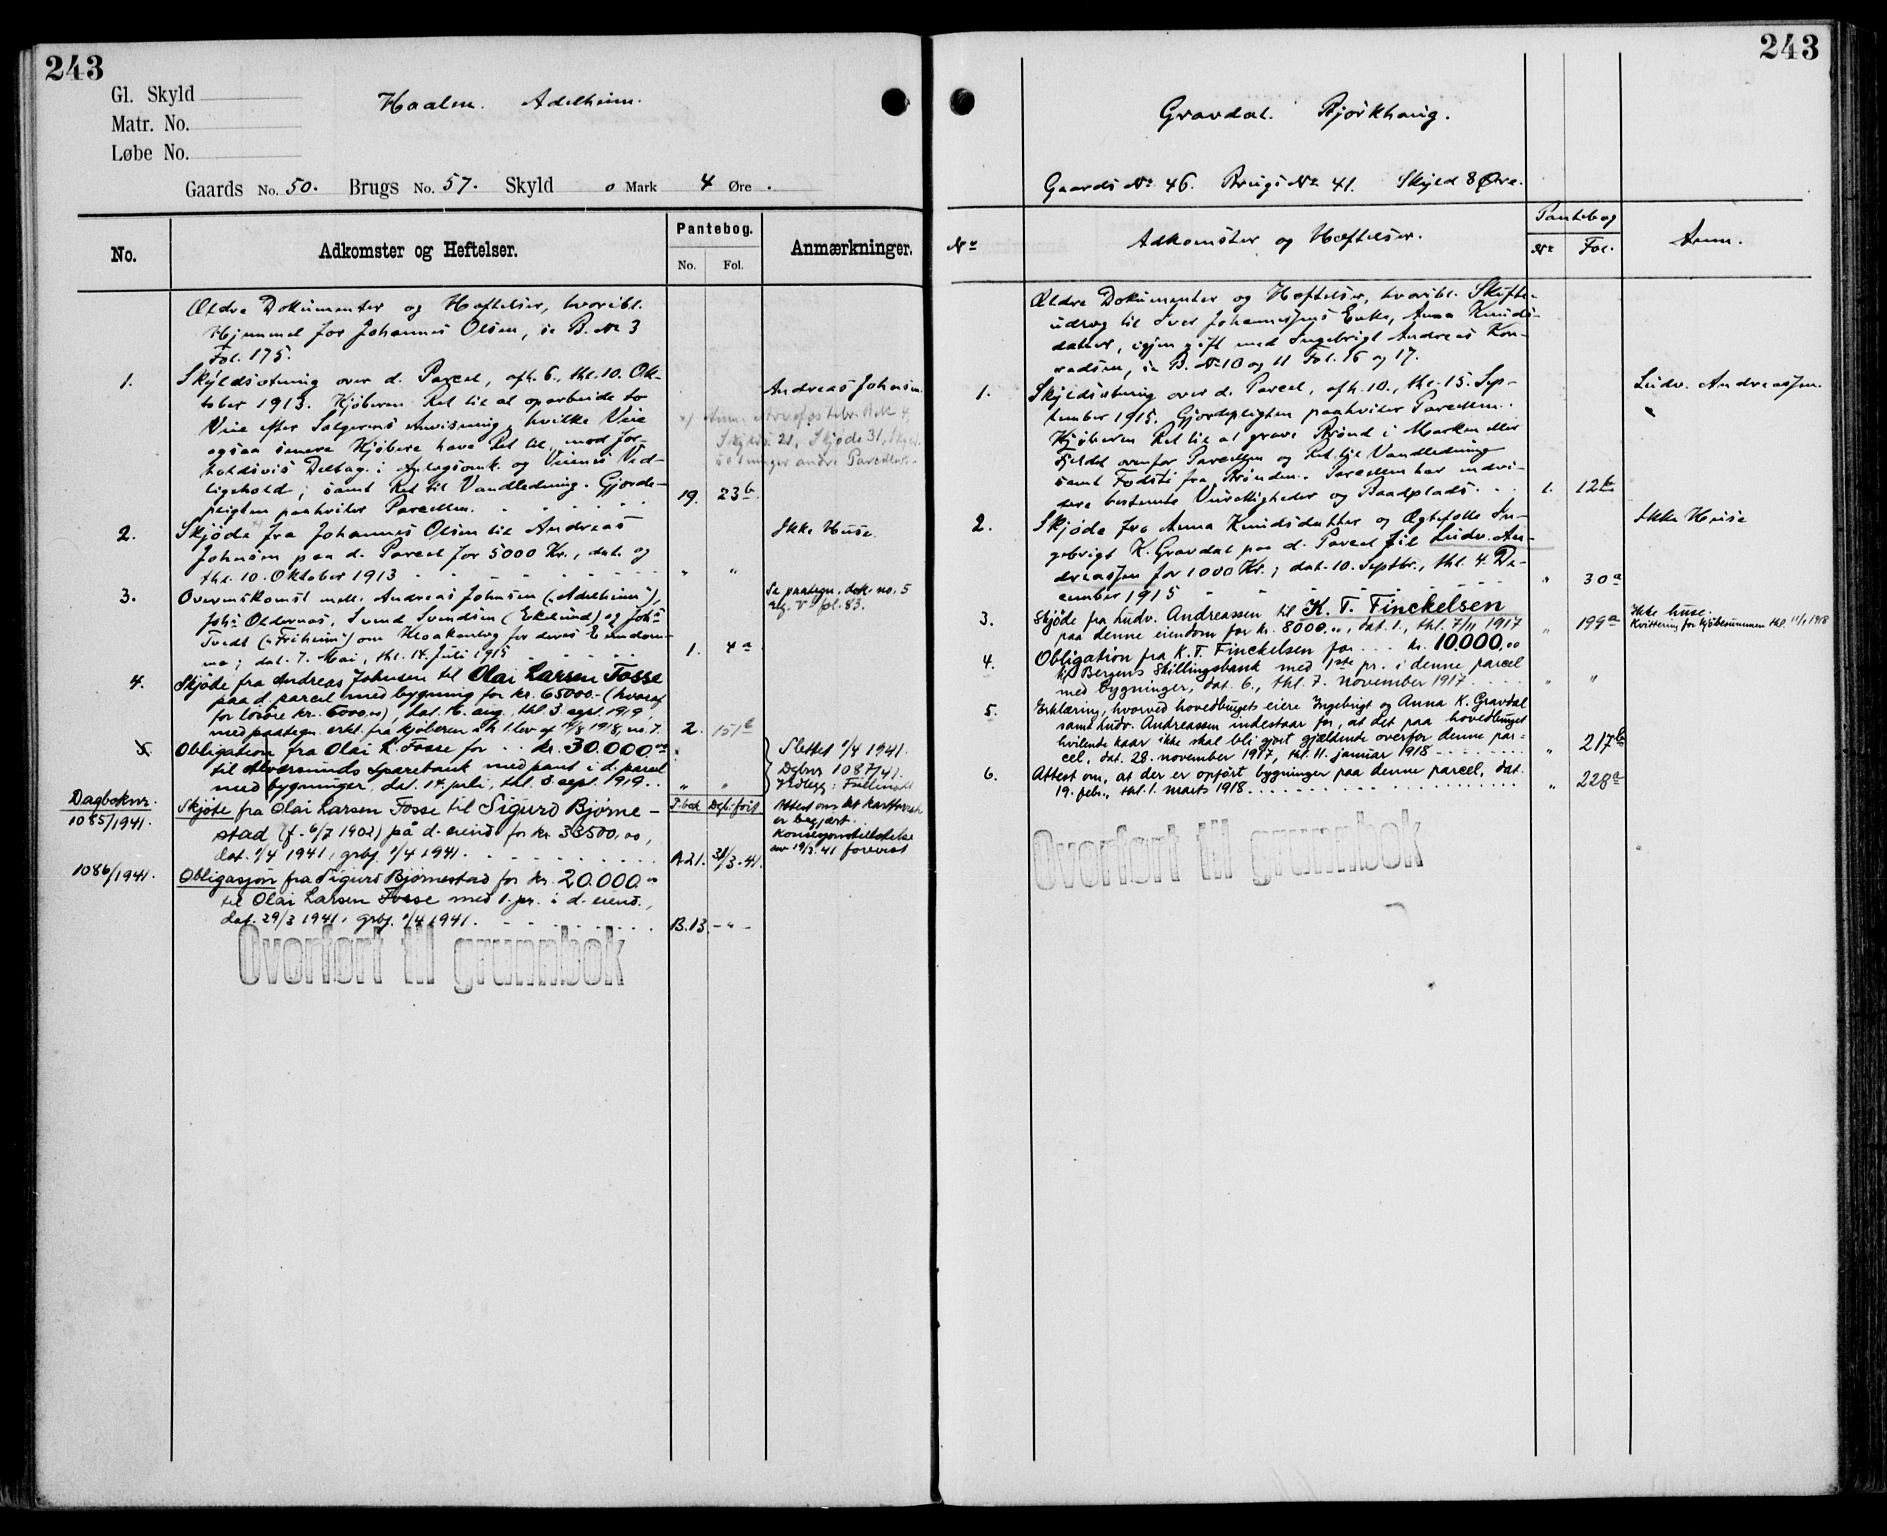 243
Gl. Skyld
Matr. No.
Løbe No.
Haalen. Adelheim.
Gaards No. 50. Brugs No. 57. Skyld 0 Mark 4 Øre.
No.
Adkomster og Heftelser.
Pantebog.
No. Fol.
Anmærkninger.
Ældre Dokumenter og Hæftelser, hvoribl.
Hjemmel for Johannes Olsen, se B. No 3
Fol. 175.
1. Skyldsætning over d. Parcel, afh. 6., thl. 10. Ok-
tober 1913. Kjøberen Ret til at oparbeide to
Veie efter Sælgerens Anvisning, hvilke Veie
ogsaa senere Kjøbere have Ret til, mod for-
holdsvis Deltag. i Anlægsomk. og Veienes Ved-
ligehold; samt Ret til Vandledning. Gjærde-
pligten paahviler Parcellen. 19. 23b
Andreas Johnsen.
2. Skjøde x) fra Johannes Olsen til Andreas
Johnsen paa d. Parcel for 5000 Kr., dat. og
thl. 10. Oktober 1913 " "
Ikke Huse
3. Overenskomst mell. Andreas Johnsen ("Adelheim"),
Johs Oldernæs, Svend Svendsen (Ekelund) og Johs
Tvedt ("Friheim") om Kloakanlæg for deres Eiendom-
me; dat. 7. Mai, thl. 14. Juli 1915 1. 4a
Se paategn. dok. no. 5
rg. V fol. 83.
4. Skjøde fra Andreas Johnsen til Olai Larsen Fosse
paa d. parcel med bygning for kr. 65000.- (hvoraf
for løsøre kr. 6000,00), dat. 16. aug., thl. 3. sept. 1919,
med paategn. erkl. fra kjøberen a. h. t. lov af 16/8 1918, no. 7. 2. 151b
5. Obligation fra Olai L. Fosse for .. kr. 30.000,00
til Alversunds Sparebank med pant i d. parcel
med bygninger, dat. 14. juli, thl. 3. sept. 1919 .. " "
Slettet 1/4 1941.
Dgbnr 1087/41.
Vedlegg: Fullmakt
Dagboknr.
1085/1941.
Skjøte fra Olai Larsen Fosse til Sigurd Bjørne-
stad (f. 6/7 1902) på d. eiend. for kr 33500,00,
dat. 1/4 1941, grbj. 1/4 1941. A21. 31/3-41.
P.bok Dgb. ført
Attest om at karttvist
er begjært.
Konsesjonstillatelse
av 19/3.41 forevist
1086/1941.
Obligasjon fra Sigurd Bjørnestad for kr. 20.000,00
til Olai Larsen Fosse med 1. pr. i d. eiend.,
dat. 29/3 1941, grbj. 1/4 1941. B.13. - " -
Overført til grunnbok
243
Gravdal. Bjørkhaug.
Gaards No 46. Brugs No 41. Skyld 8 Øre.
No
Adkomster og Hæftelser.
Pantebog
No Fol.
Anm.
Ældre Dokumenter og Hæftelser, hvoribl. Skifte-
udlæg til Iver Johannessens Enke, Anna Knuds-
datter, igjen gift med Ingebrigt Andreas Kon-
radsen, se B. No 10 og 11 Fol. 16 og 17.
1. Skyldsætning over d. Parcel, afh. 10., thl. 15. Sep-
tember 1915. Gjerdepligten paahviler Parcellen.
Kjøberen Ret til at grave Brønd i Marken eller
Fjeldet ovenfor Parcellen og Ret til Vandledning
samt Fodsti fra Brønden. Parcellen har endvi-
dere bestemte Veirettigheder og Baadplads. 1. 12b
Ludv. Andreassen.
2. Skjøde fra Anna Knudsdatter og Ægtefælle In-
gebrigt K. Gravdal paa d. Parcel til Ludv. An-
dreassen for 1000 Kr.; dat. 10. Septbr., thl. 4. De-
cember 1915 " 30a
Ikke Huse
3. Skjøde fra Ludv. Andreassen til K. T. Finckelsen
paa denne eiendom for kr. 8000,00, dat. 1., thl. 7/11 1917 " 199a
Ikke huse.
Kvittering for kjøbesummen thl. 11/1 1918
4. Obligation fra K. T. Finckelsen for ... kr. 10.000,00
til Bergens Skillingsbank med 1ste pr. i denne parcel
med bygninger, dat. 6., thl. 7. november 1917 .... " "
5. Erklæring, hvorved hovedbrugets eiere Ingebrigt og Anna K. Gravdal
samt Ludv. Andreassen indestaar for, at det paa hovedbruget
hvilende kaar ikke skal bli gjort gjældende overfor denne par-
cel, dat. 28. november 1917, thl. 11. januar 1918 " 217b
6. Attest om, at der er opført bygninger paa denne parcel, dat.
19. febr., thl. 1. marts 1918 " 228a
Overført til grunnbok